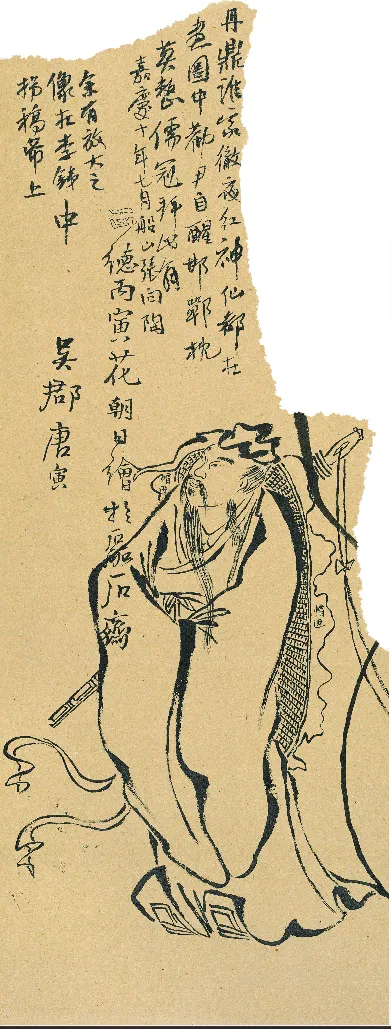 丹鼎誰燒徹夜紅神仙都在
畫圖中勸君自醒邯鄲枕
莫整儒冠拜此翁
嘉慶十年七月船山張問陶
德丙寅花朝日繪於石齋
余有放大之
像在李鉄申
拐稿帋上
吳郡唐寅